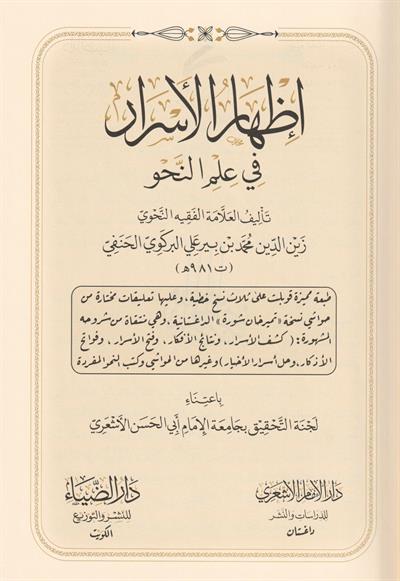 إظهار الأسرار
في علم النحو
تأليف العلامة الفقيه النحوي
زين الدين محمد بن بير علي البركوي الحنفي
(ت ٩٨١هـ)
طبعة مميزة قوبلت على ثلاث نسخ خطية، وعليها تعليقات مختارة من
حواشي نسخة «تميرخان شورة» الداغستانية، وهي منتقاة من شروحه
الشهورة: (كشف الأسرار، ونتائج الأفكار، وفتح الأسرار، وفواتح
الأذكار، وحل أسرار الأخيار) وغيرها من الحواشي وكتب النحو المفردة
باعتناء
لجنة التحقيق بجامعة الإمام أبي الحسن الأشعري
دار الإمام الأشعري
للدراسات والنشر
داغستان
دار الضياء
للنشر والتوزيع
الكويت